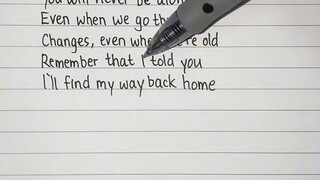 You will never be alone
Even when we go th
Changes, even when we're old
Remember that I told you
I'll find my way back home